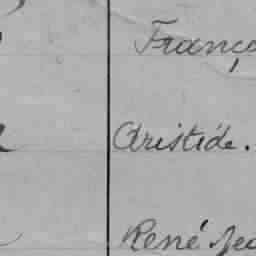 Franço
Aristide.
René Jea